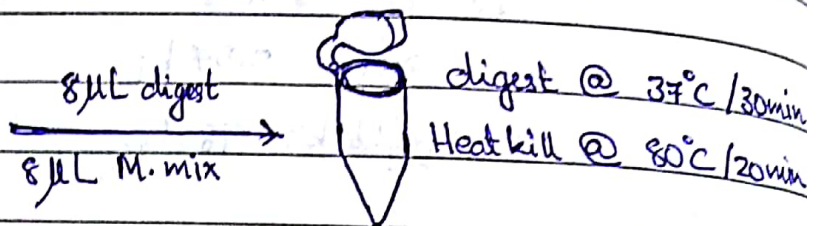 8µL digest
8µL M. mix
digest @ 37°C/30min
Heat kill @ 80°C/20min